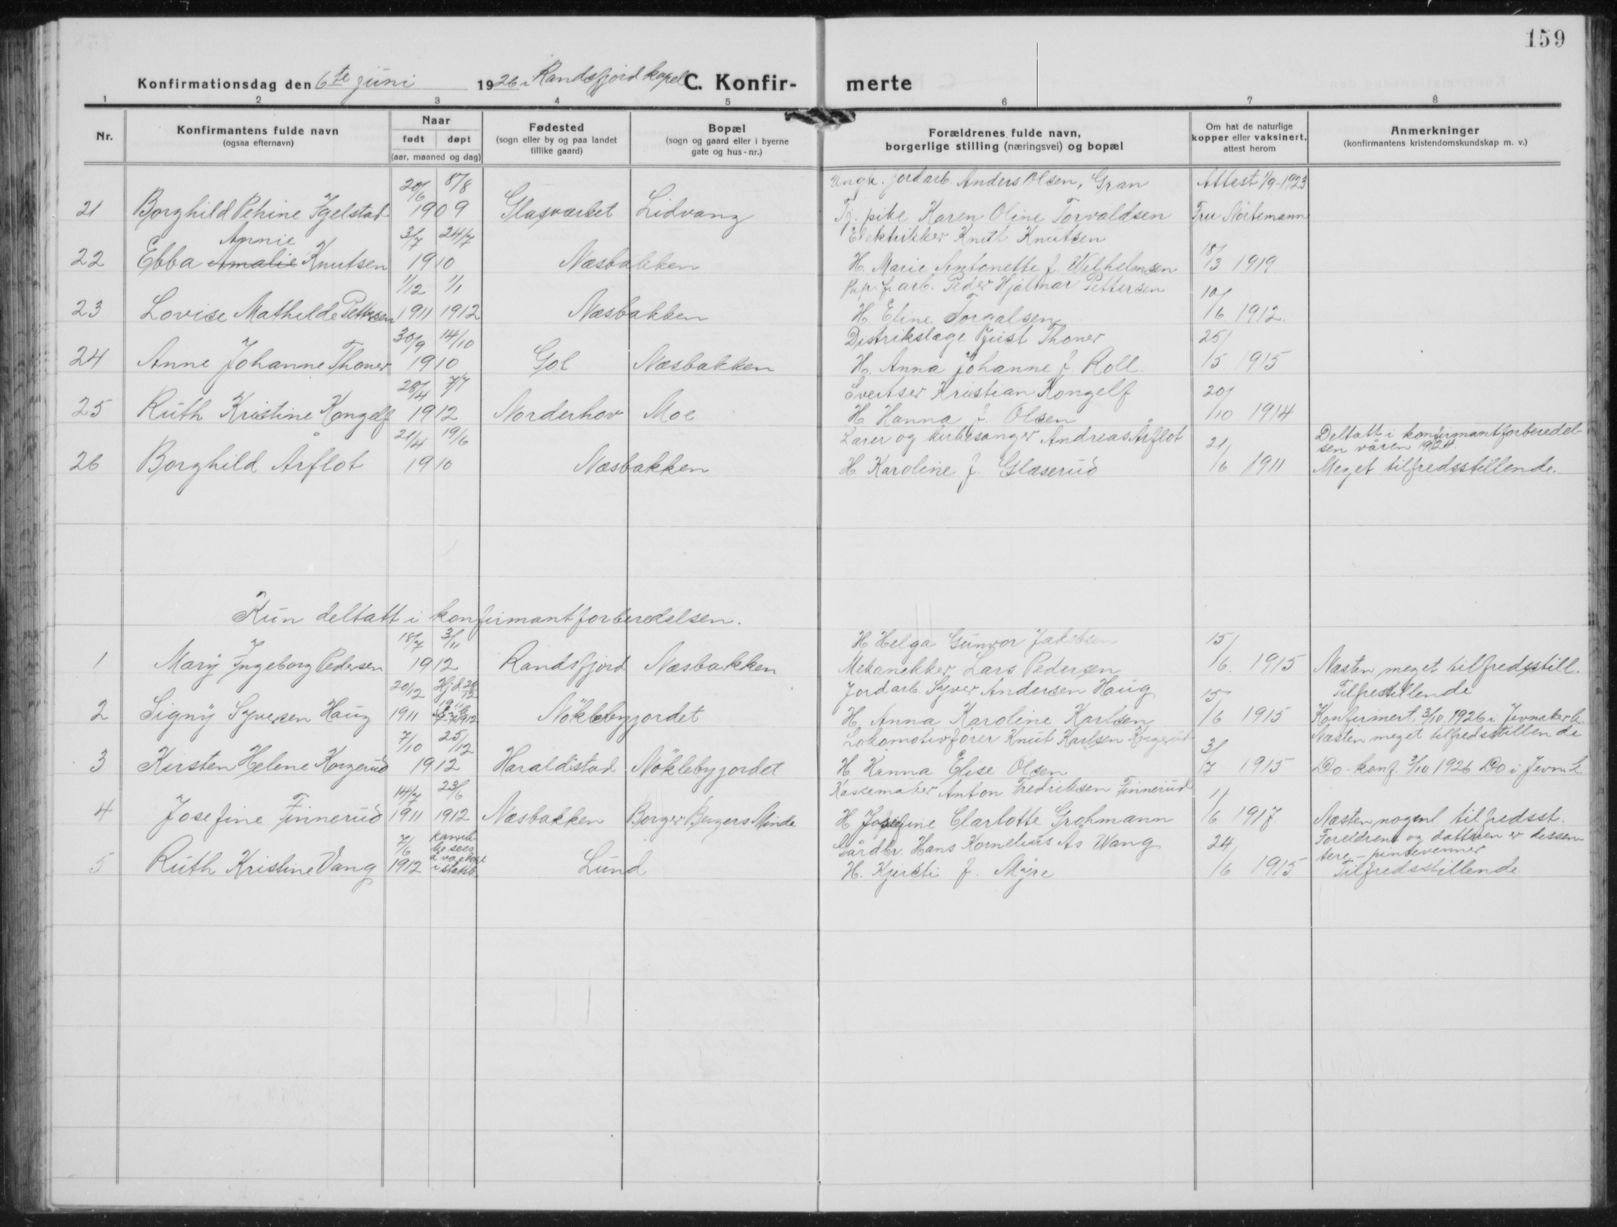 159
Konfirmationsdag den 6te juni 1926 i Randsfjord kapel C. Konfirmerte
1 2 3 4 5 6 7 8
Nr.
Konfirmantens fulde navn
(ogsaa efternavn)
Naar
født døpt
(aar, maaned og dag)
Fødested
(sogn eller by og paa landet
tillike gaard)
Bopæl
(sogn og gaard eller i byerne
gate og hus-nr.)
Forældrenes fulde navn,
borgerlige stilling (næringsvei) og bopæl
Om hat de naturlige
kopper eller vaksinert,
attest herom
Anmerkninger
(konfirmantens kristendomskundskap m. v.)
20/6 8/8 Ungk. jordarb. Anders Olsen, Gran Attest 1/9-1923
21 Borghild Petrine Igelstad 1909 Glasværket Lidvang Tj. pike Karen Oline Torvaldsen Fru Nörtemann
Annie 3/7 24/7 Elektrikker Knut Knutsen
22 Ebba Amalie Knutsen 1910 Næsbakken H. Marie Antonette f. Wilhelmsen 18/3 1919
1/12 1/1 Pap. f. arb. Peder Hjalmar Pettersen
23 Lovise Mathilde Pettersen 1911 1912 Næsbakken H. Eline Torgalsen 10/6 1912.
30/9 14/10 Distrikslæge Just Thoner
24 Anne Johanne Thoner 1910 Gol Næsbakken H. Anna Johanne f. Roll 25/5 1915
28/4 7/7 Sveitser Kristian Kongelf
25 Ruth Kristine Kongelf 1912 Norderhov Moe H. Hanna f. Olsen 20/10 1914
21/4 19/6 Lærer og kirkesanger Andreas Årflot Deltatt i konfirmantforberedel-
sen våren 1924
26 Borghild Årflot 1910 Næsbakken H. Karoline f. Glæserud 21/6 1911 Meget tilfredsstillende.
Kun deltatt i konfirmantforberedelsen.
18/7 3/11 H. Helga Gunvor Jakobsen
1 Mary Ingeborg Pedersen 1912 Randsfjord Næsbakken Mekanikker Lars Pedersen 15/6 1915 Næsten meget tilfredsstill.
20/12 Hjd. Jordarb. Syver Andersen Haug Tilfredstillende
2 Signy Syversen Haug 1911 1912 Nöklebygjordet H. Anna Karoline Karlsen 15/6 1915 Konfirmert 3/10 1926 i Jevnaker k.
7/10 25/12 Lokomotivförer Knut Karlsen Korgerud Næsten meget tilfredsstillende
3 Kirsten Helene Korgerud 1912 Haraldstad Nöklebygjordet H. Hanna Elise Olsen 3/7 1915 Do. konf. 3/10 1926 Do i Jevn. k.
14/7 23/6 Kassemaker Anton Fredriksen Finnerud
4 Josefine Finnerud 1911 1912 Næsbakken Borger Bergers Minde H. Josefine Clarlotte Grohmann 11/6 1917 Næsten noget tilfredsst.
7/6 Gårdbr. Hans Kornelius As Wang Foreldrene og datteren er dessen-
tere - pinsevenner
5 Ruth Kristine Vang 1912 Lund H. Kjersti f. Myre 24/6 1915 Tilfredsstillende